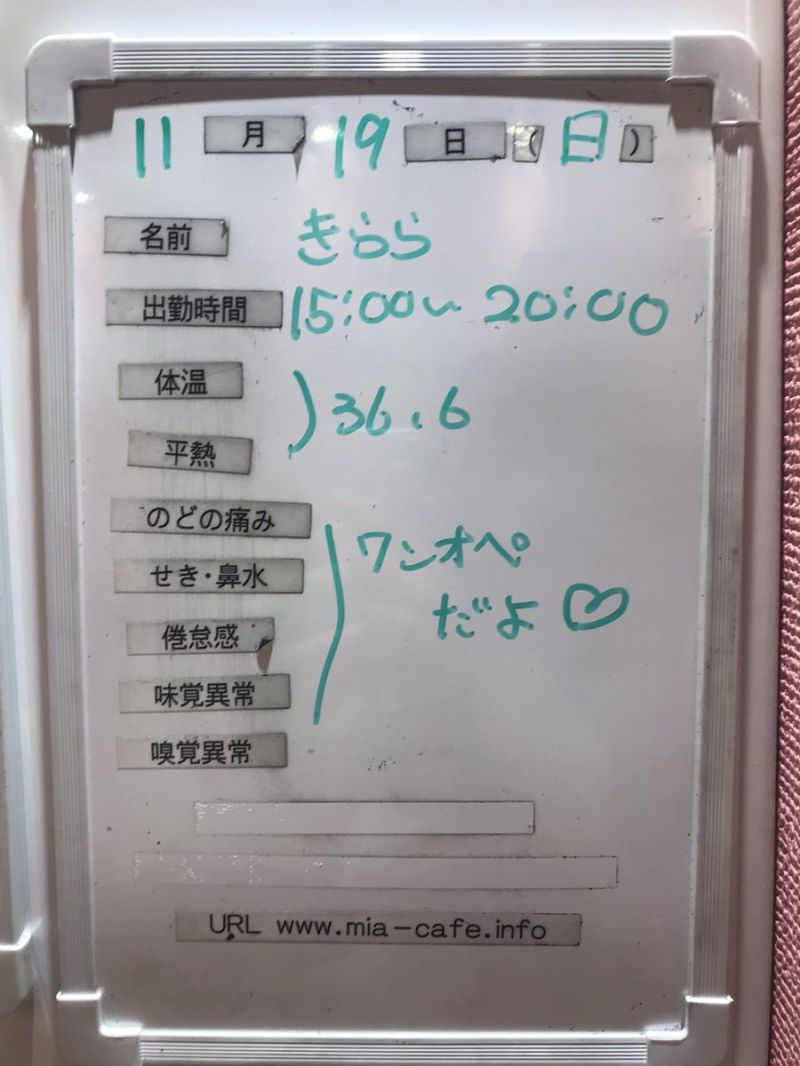 11月19日(日)
名前 きらら
出勤時間 15:00〜20:00
体温
平熱 36.6
のどの痛み
せき・鼻水 ワンオペ
倦怠感 だよ♡
味覚異常
嗅覚異常
URL www.mia-cafe.info